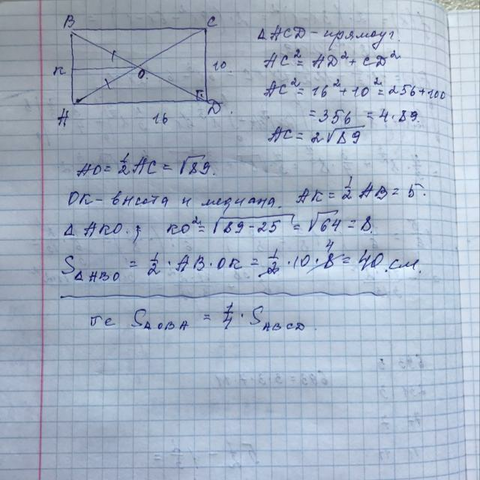 B C
K O 10
A 16 D
ΔACD - прямоуг
AC² = AD² + CD²
AC² = 16² + 10² = 256 + 100
= 356 = 4 · 89
AC = 2√89
AO = ½ AC = √89.
OK - высота и медиана. AK = ½ AB = 5.
Δ AKO; KO² = √89-25 = √64 = 8.
S ΔABO = ½ · AB · OK = ½ · 10 · 8 4 = 40 см.
т.е S ΔOBA = ¼ · S ABCD.